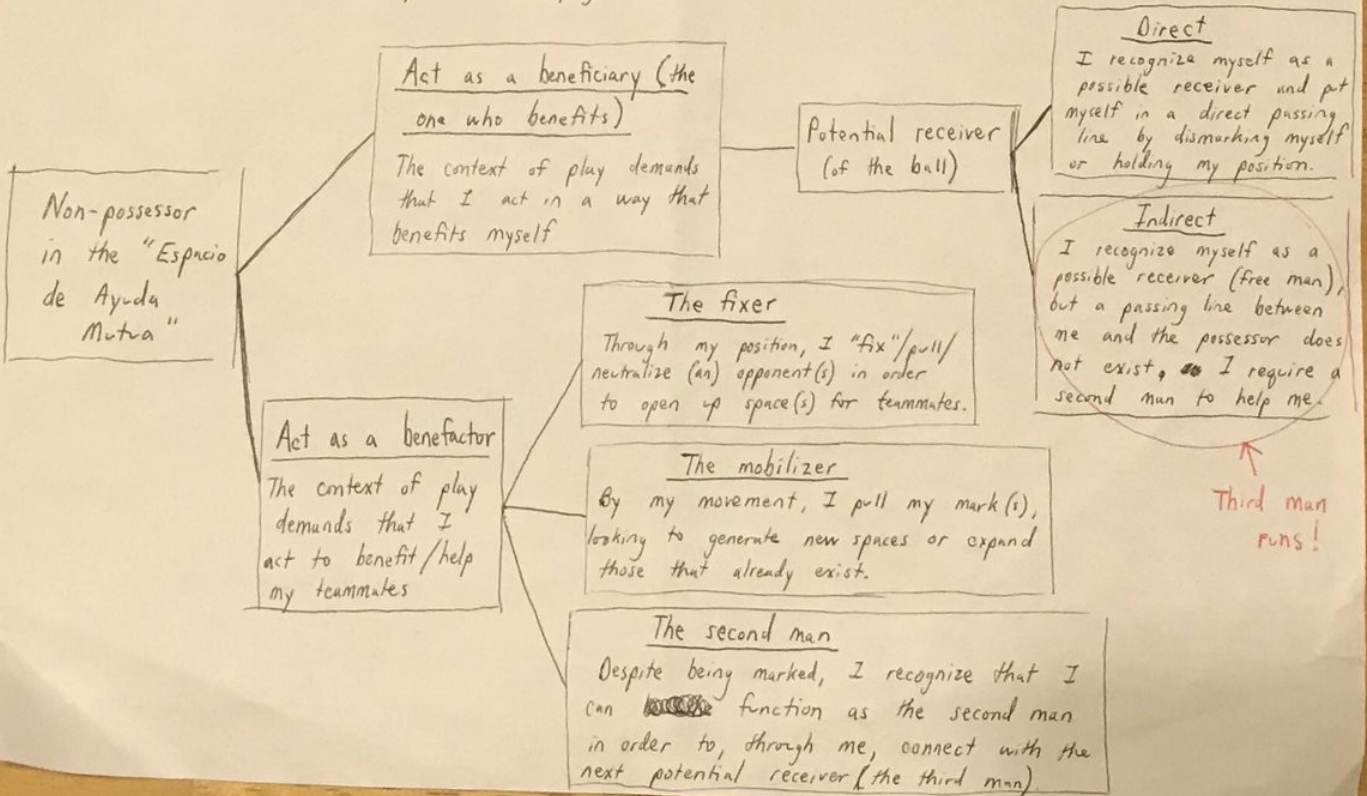 Non-possessor
in the "Espacio
de Ayuda
Mutua"
Act as a beneficiary (the
one who benefits)
The context of play demands
that I act in a way that
benefits myself
Potential receiver
(of the ball)
Direct
I recognize myself as a
possible receiver and put
myself in a direct passing
line by dismarking myself
or holding my position.
Indirect
I recognize myself as a
possible receiver (free man),
but a passing line between
me and the possessor does
not exist, I require a
second man to help me.
Third man
runs!
Act as a benefactor
The context of play
demands that I
act to benefit/help
my teammates
The fixer
Through my position, I "fix"/pull/
neutralize (an) opponent(s) in order
to open up space(s) for teammates.
The mobilizer
By my movement, I pull my mark(s),
looking to generate new spaces or expand
those that already exist.
The second man
Despite being marked, I recognize that I
can function as the second man
in order to, through me, connect with the
next potential receiver (the third man).